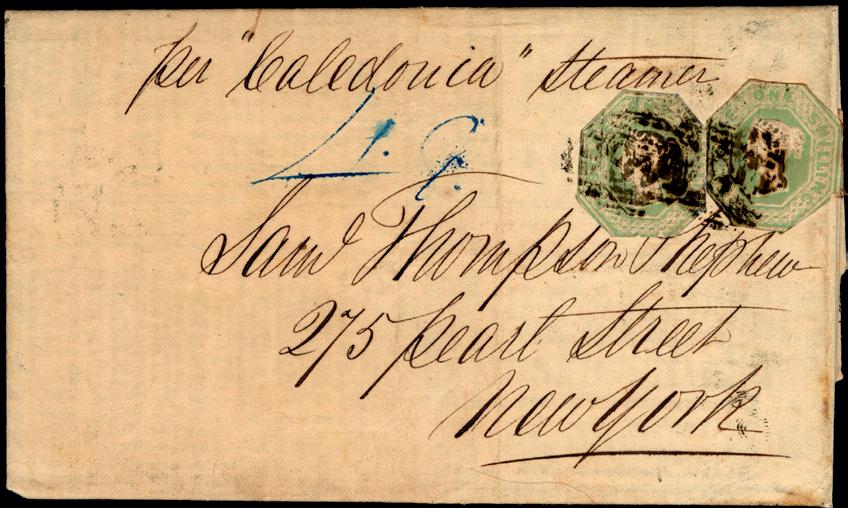 per "Caledonia" Steamer
ONE SHILLING
Sam Thompson & Nephew
275 pearl Street
New York